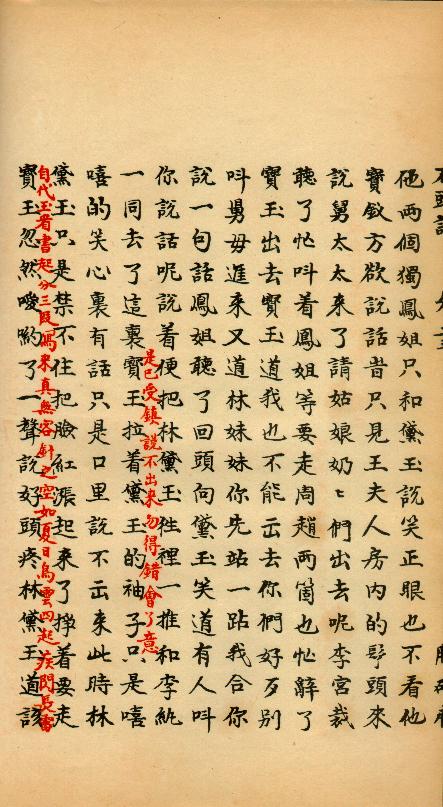 他两個獨鳳姐只和黛玉說笑正眼也不看他
寶釵方欲說話昔只見王夫人房内的丫頭來
說舅太太來了請姑娘奶〻們出去呢李宮裁
聽了忙呌着鳳姐等要走周趙兩箇也忙辭了
寶玉出去寶玉道我也不能出去你們好歹別
呌舅毋進來又道林妹妹你先站一跕我合你
說一句話鳳姐聽了回頭向黛玉笑道有人呌
你說話呢說着便把林黛玉徃裡一推和李紈
一同去了這裏寶玉拉着黛玉的袖子只是嘻
是已受鎮説不出來勿得錯會了意
嘻的笑心裏有話只是口里說不出來此時林
黛玉只是禁不住把臉紅漲起來了掙着要走
自代玉看書起分三段寫來真無容針之空如夏日烏雲四起疾閃長雷
寶玉忽然噯喲了一聲說好頭疼林黛玉道該